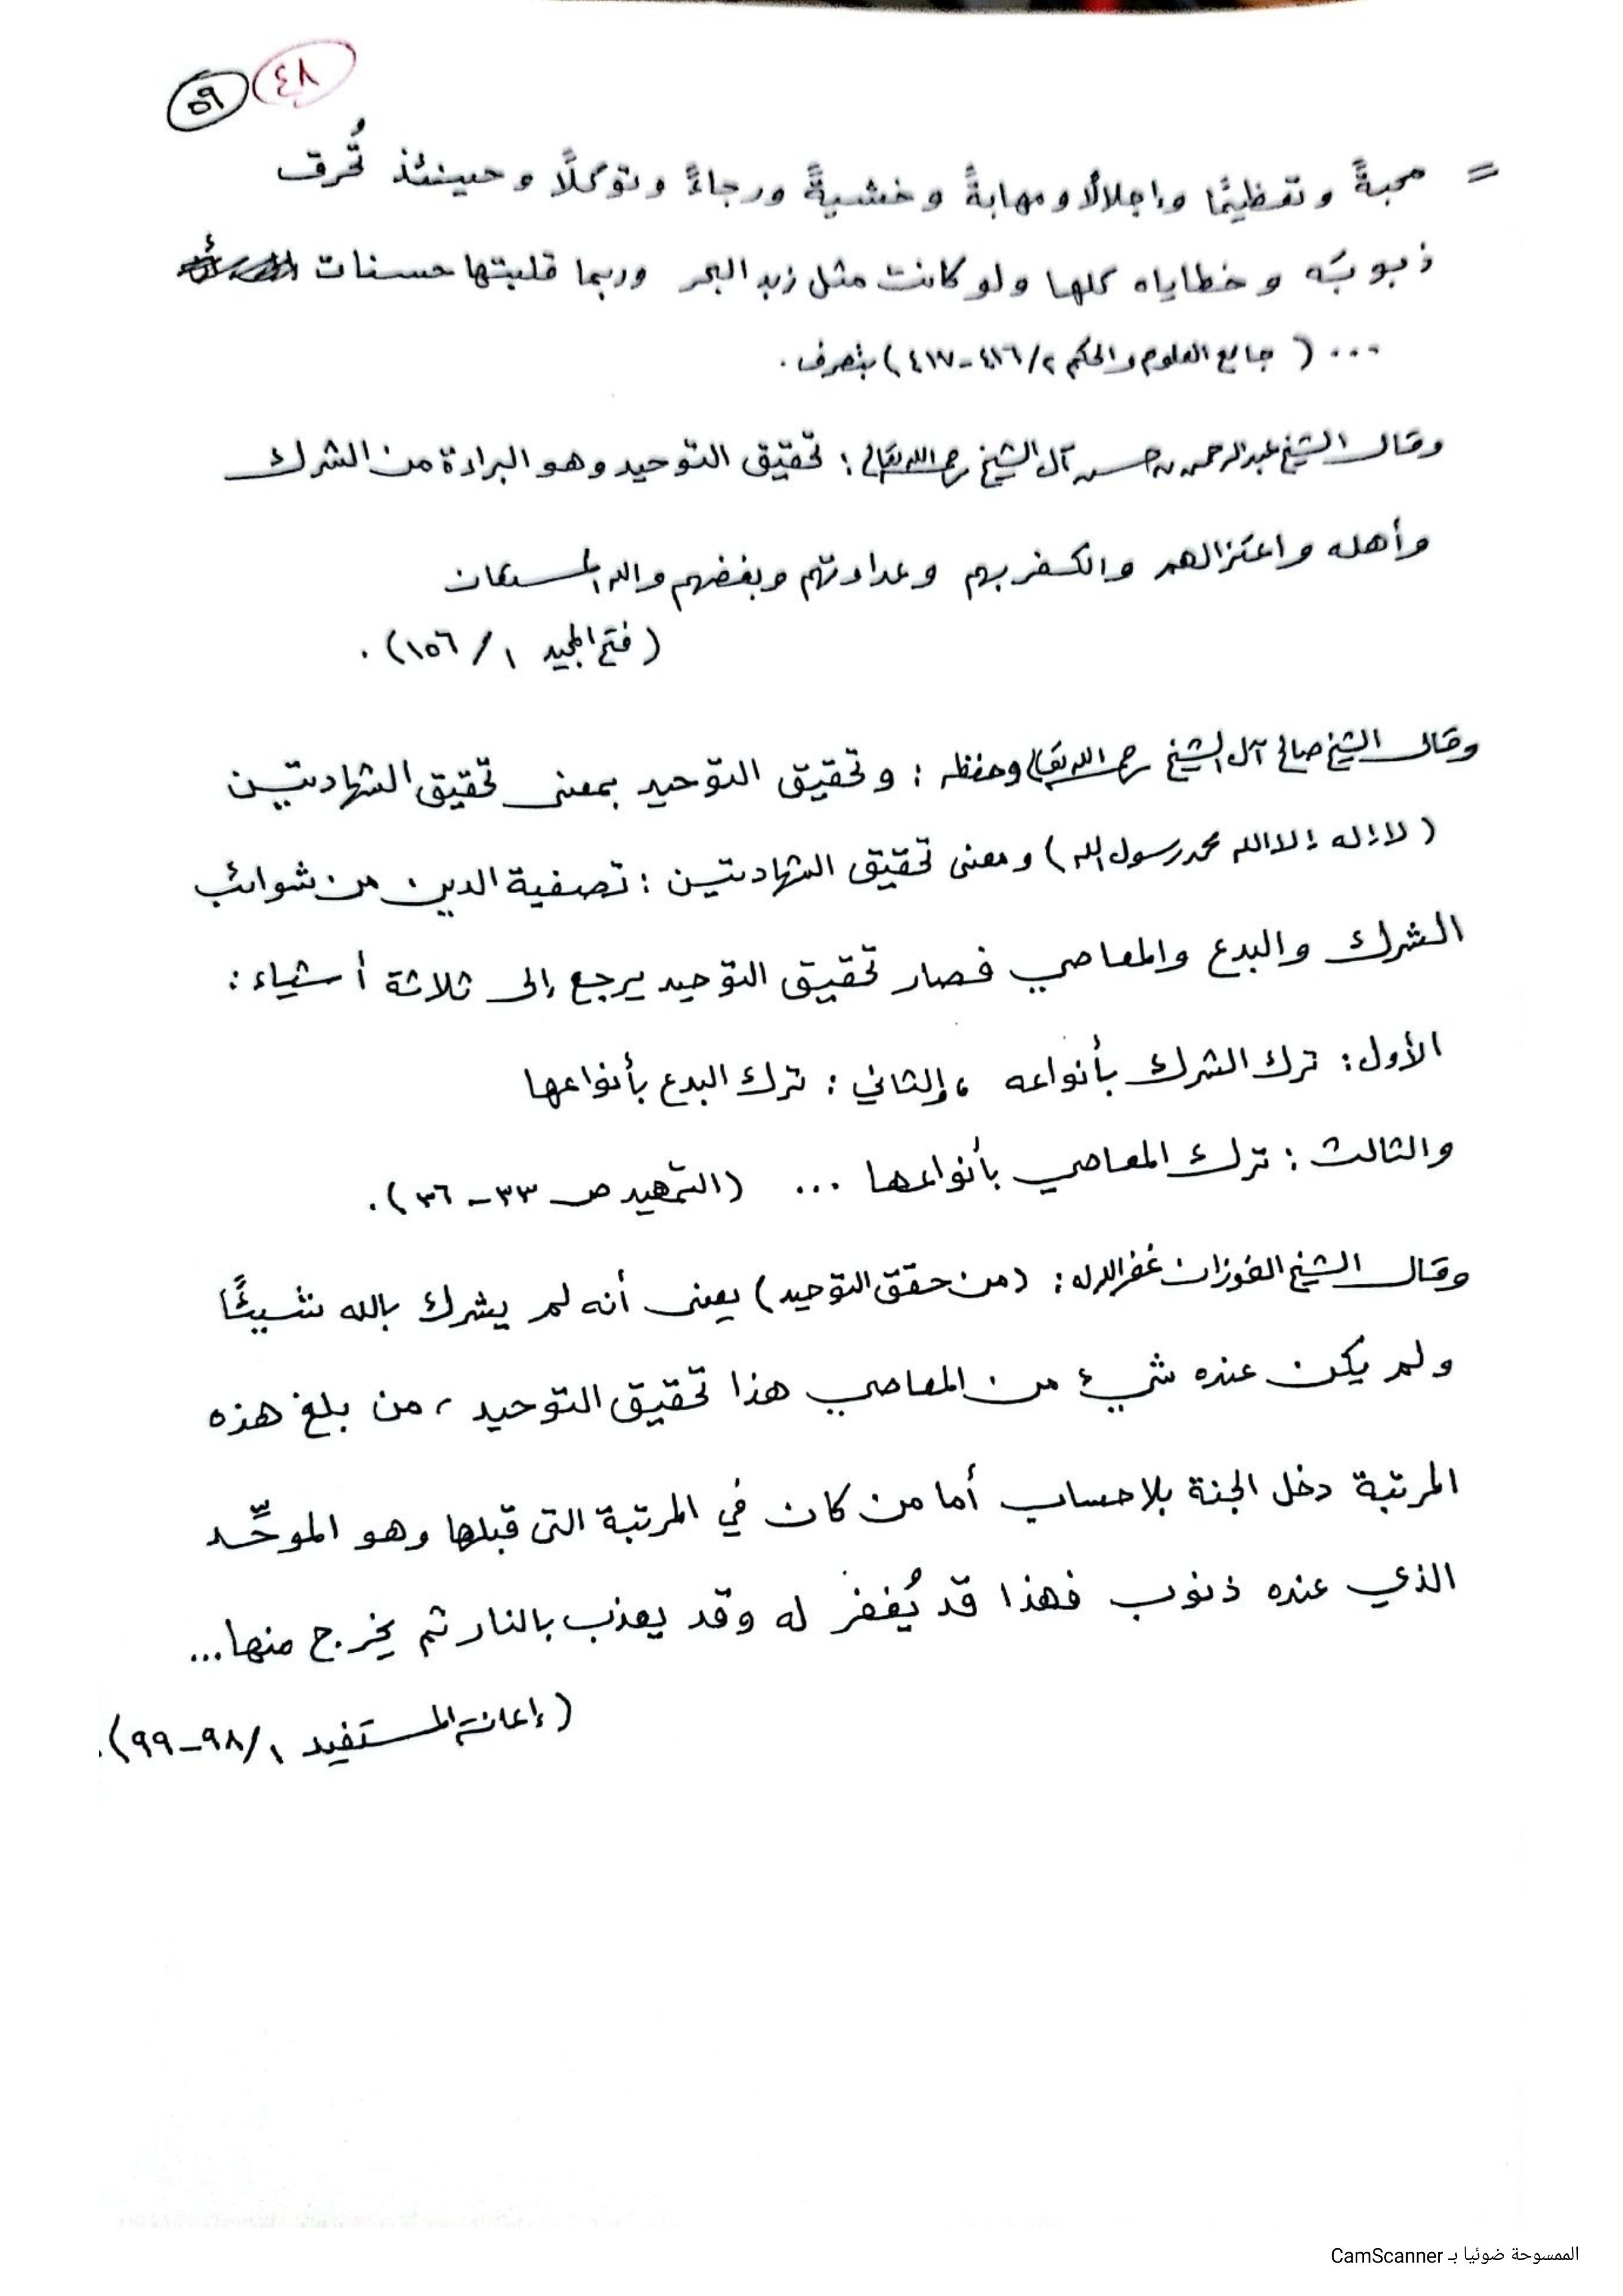 ٤٨
٥٩
= محبةً وتعظيمًا وإجلالًا ومهابةً وخشيةً ورجاءً وتوكلًا وحينئذ تُحرق
ذبوبَه وخطاياه كلها ولو كانت مثل زبد البحر وربما قلبتها حسنات
... ( جامع العلوم والحكم ٢/ ٤١٦-٤١٧) بتصرف .
وقال الشيخ عبدالرحمن بن حسن آل الشيخ رحمه الله تعالى : تحقيق التوحيد وهو البراءة من الشرك
وأهله واعتزالهم والكفر بهم وعداوتهم وبغضهم والله المستعان
(فتح المجيد ١ / ١٥٦) .
وقال الشيخ صالح آل الشيخ رحمه الله تعالى وحفظه : وتحقيق التوحيد بمعنى تحقيق الشهادتين
( لا إله إلا الله محمد رسول الله ) ومعنى تحقيق الشهادتين : تصفية الدين من شوائب
الشرك والبدع والمعاصي فصار تحقيق التوحيد يرجع إلى ثلاثة أشياء :
الأول : ترك الشرك بأنواعه ، والثاني : ترك البدع بأنواعها
والثالث : ترك المعاصي بأنواعها ... (التمهيد ص ٣٣-٣٦) .
وقال الشيخ الفوزان غفر الله له : (من حقق التوحيد) يعنى أنه لم يشرك بالله شيئًا
ولم يكن عنده شيء من المعاصي هذا تحقيق التوحيد ، من بلغ هذه
المرتبة دخل الجنة بلا حساب أما من كان في المرتبة التى قبلها وهو الموحِّد
الذي عنده ذنوب فهذا قد يُغفر له وقد يعذب بالنار ثم يخرج منها...
(إعانة المستفيد ١/ ٩٨-٩٩) .
الممسوحة ضوئيا بـ CamScanner